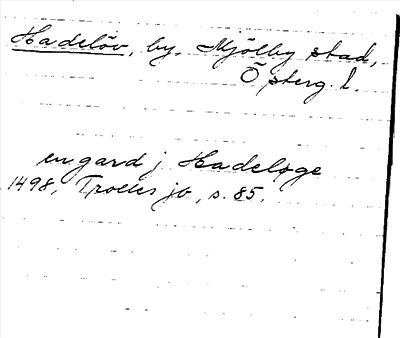 Hadelöv, by. Mjölby stad,
Österg. l.
en gard j Hadeløge
1498, Trolles jb, s. 85.